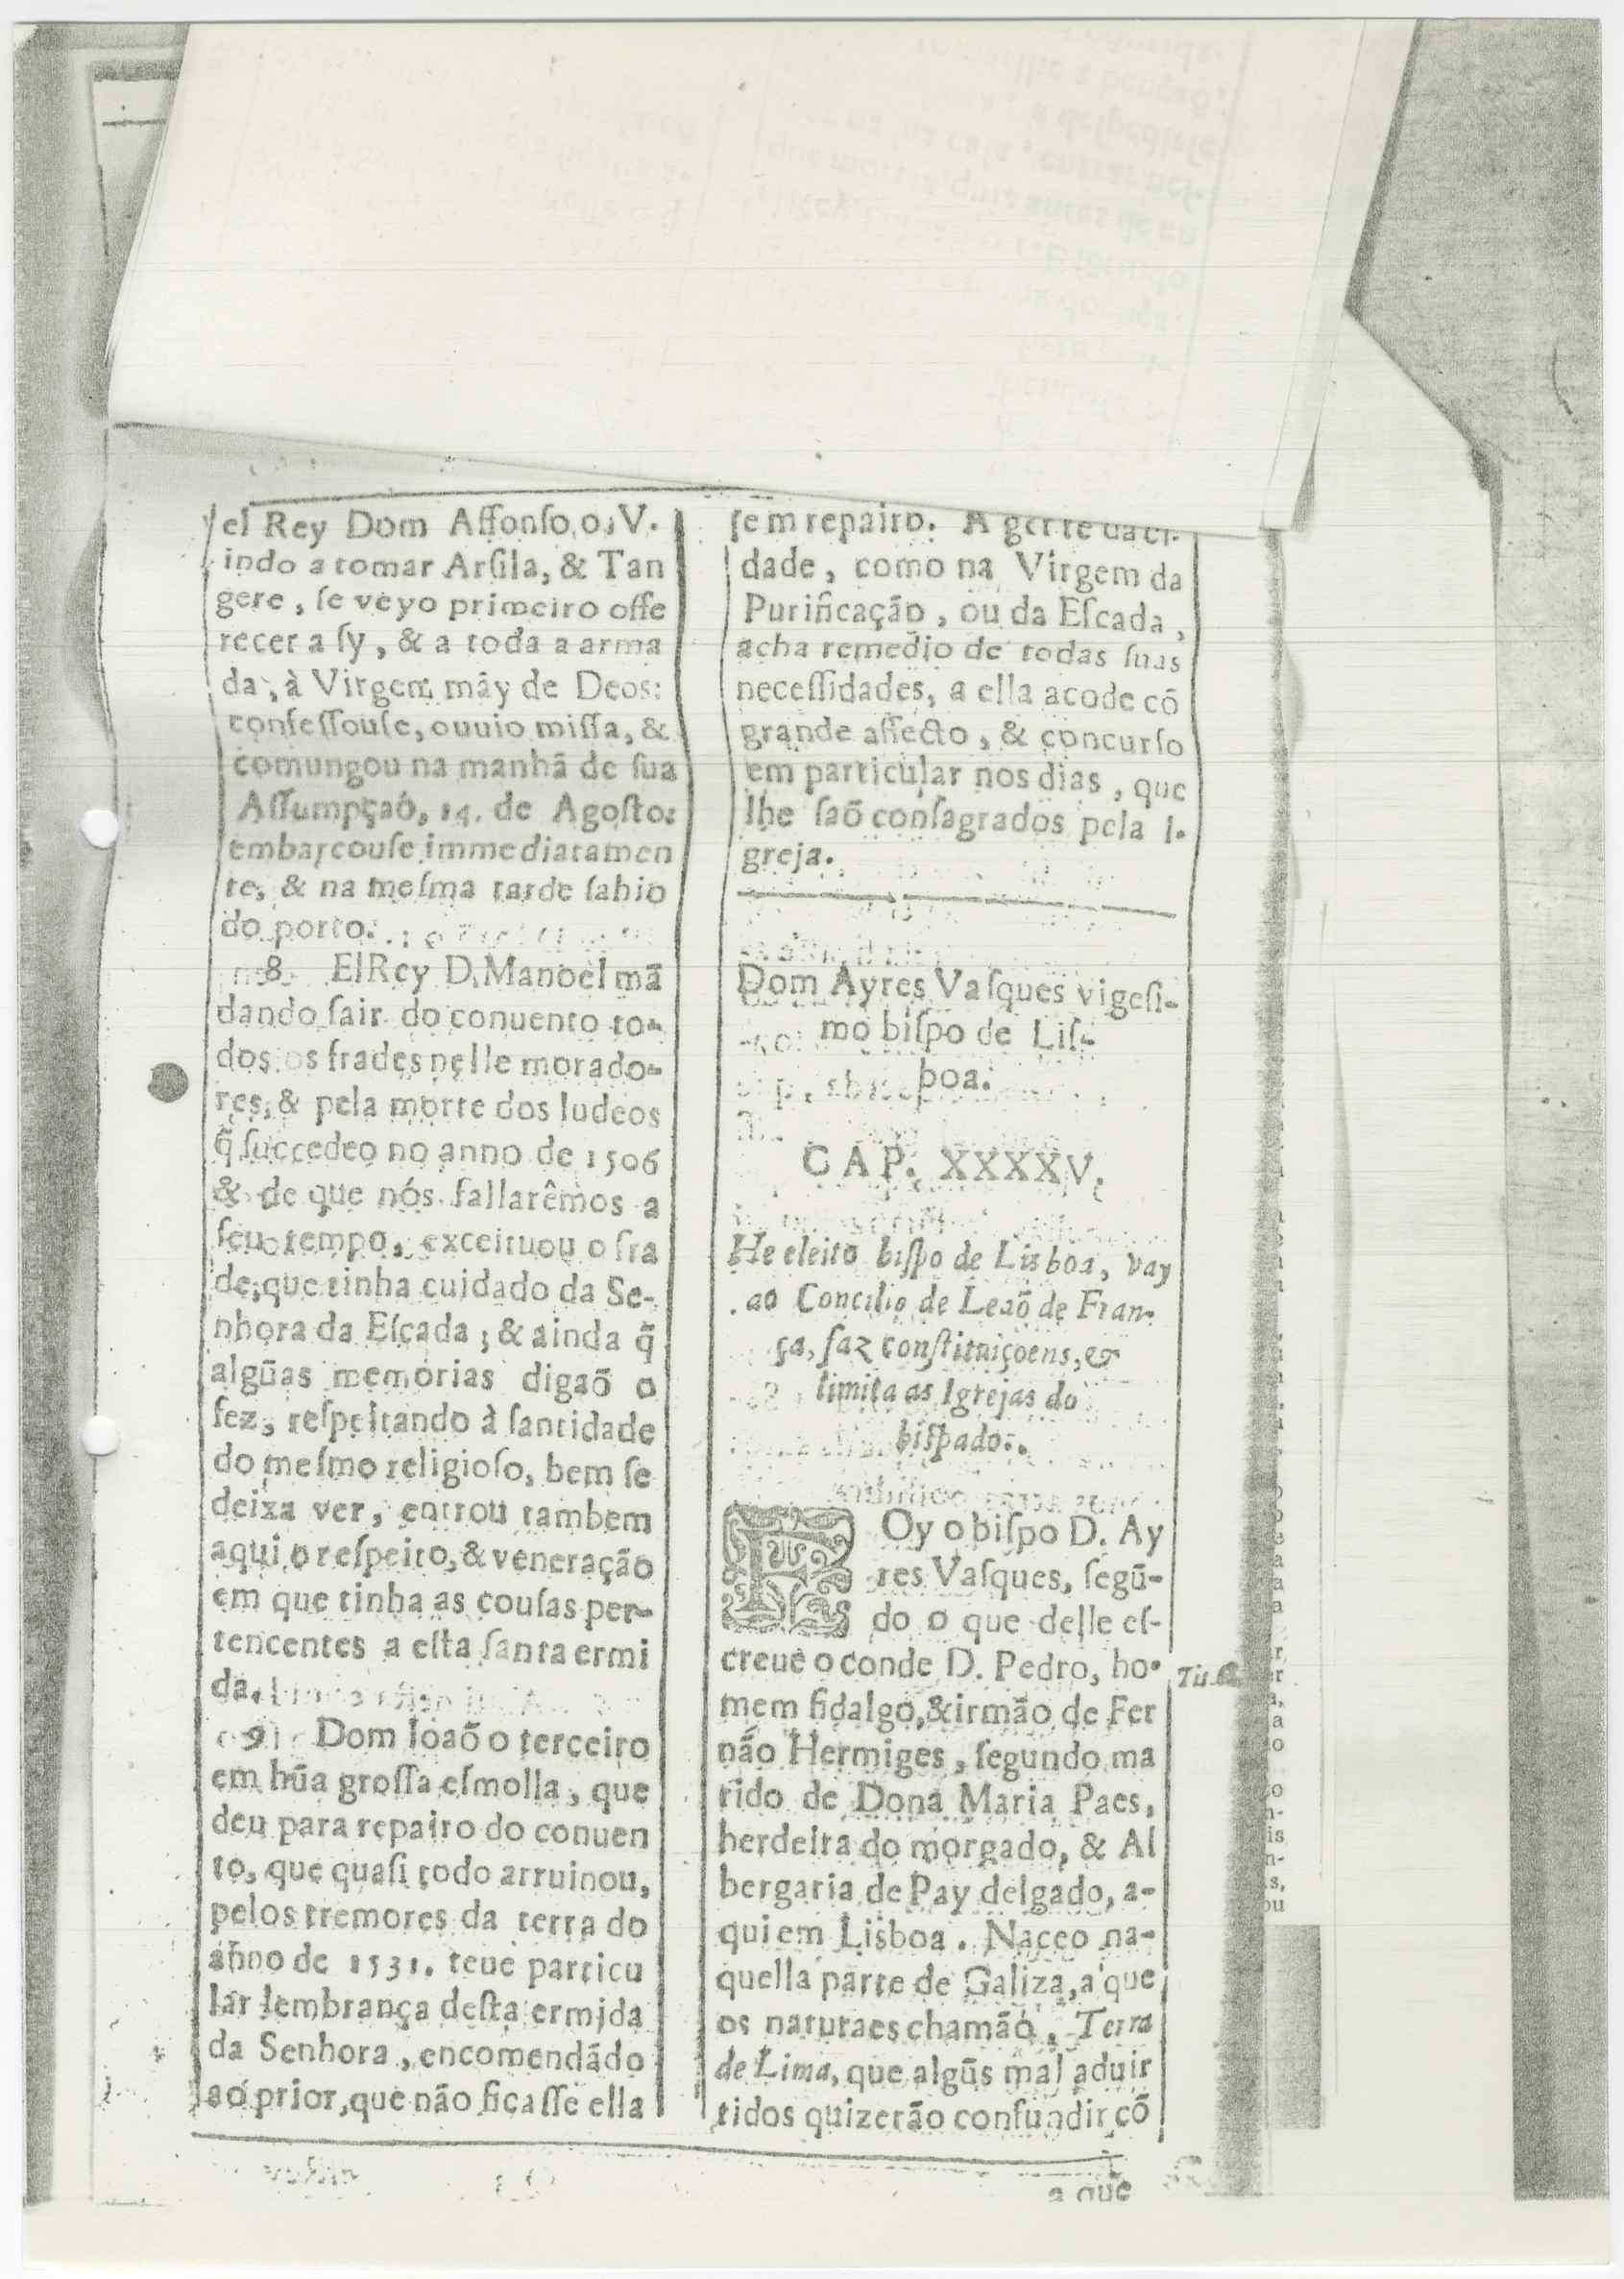 el Rey Dom Affonſo o, V.
indo a tomar Arſila, & Tan
gere, ſe veyo primeiro offe
recer a ſy, & a toda a arma
da, à Virgem mãy de Deos:
confeſſouſe, ouuio miſſa, &
comungou na manhã de ſua
Aſſumpçaõ, 14. de Agoſto:
embarcouſe immediatamen
te, & na meſma tarde ſahio
do porto.
8 ElRey D. Manoel mã
dando ſair do conuento to-
dos os frades nelle morado-
res, & pela morte dos Iudeos
q̃ ſuccedeo no anno de 1506
& de que nós fallarêmos a
ſeu tempo, exceituou o fra
de, que tinha cuidado da Se-
nhora da Eſcada; & ainda q̃
algũas memorias digaõ o
fez, reſpeitando à ſantidade
do meſmo religioſo, bem ſe
deixa ver, entrou tambem
aqui o reſpeito, & veneração
em que tinha as couſas per-
tencentes a eſta ſanta ermi
da.
9 Dom Ioaõ o terceiro
em hũa groſſa eſmolla, que
deu para repairo do conuen
to, que quaſi todo arruinou,
pelos tremores da terra do
anno de 1531. teue particu
lar lembrança deſta ermida
da Senhora, encomendãdo
ao prior, que não ficaſſe ella
ſem repairo. A gente da ci-
dade, como na Virgem da
Purificação, ou da Eſcada,
acha remedio de todas ſuas
neceſſidades, a ella acode cõ
grande affecto, & concurſo
em particular nos dias, que
lhe ſaõ conſagrados pela I-
greja.
Dom Ayres Vaſques vigeſi-
mo biſpo de Liſ-
boa.
CAP. XXXXV.
He eleito biſpo de Lisboa, vay
ao Concilio de Leaõ de Fran-
ça, faz conſtituiçoens, &
limita as Igrejas do
biſpado.
FOy o biſpo D. Ay
res Vaſques, ſegũ-
do o que delle eſ-
creue o conde D. Pedro, ho-
mem fidalgo, & irmão de Fer
não Hermiges, ſegundo ma
rido de Dona Maria Paes,
herdeira do morgado, & Al
bergaria de Pay delgado, a-
qui em Lisboa. Naceo na-
quella parte de Galiza, a que
os naturaes chamão, Terra
de Lima, que algũs mal aduir
tidos quizerão confundir cõ
a que
Tit.